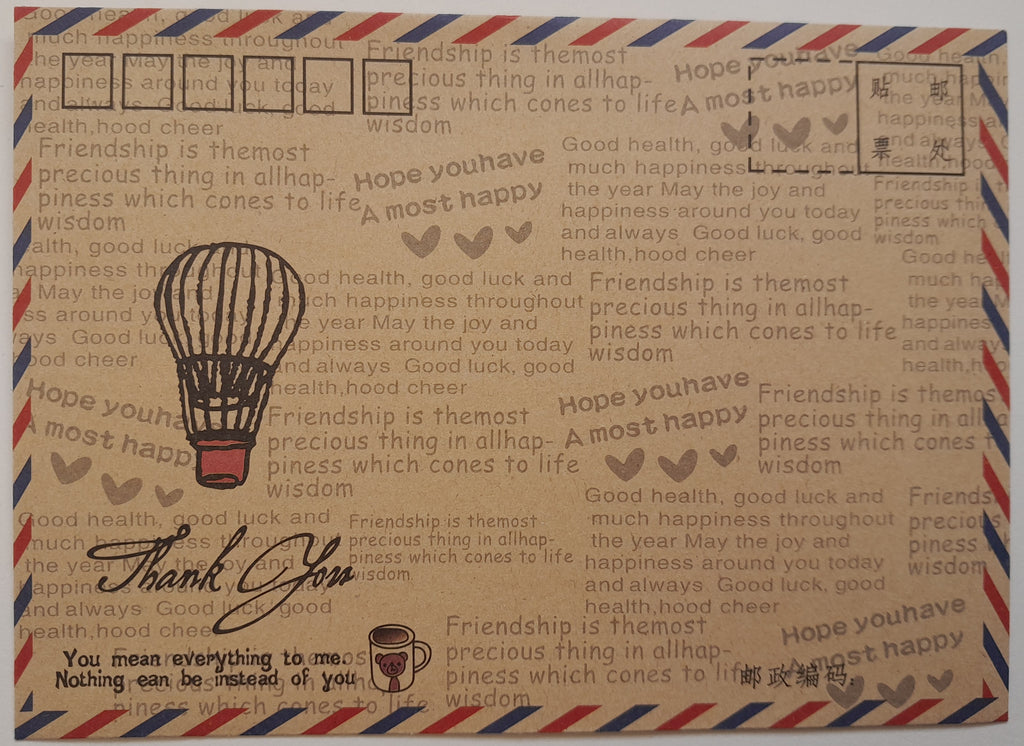 Good health, good luck and
much happiness throughout
the year May the joy and
happiness around you today
and always Good luck, good
health,hood cheer
Friendship is themost
precious thing in allhap-
piness which cones to life
wisdom
Hope youhave
A most happy
贴 邮
票 处
Good he
much hap
the year M
happiness a
and always
health,hood
Friendship is themost
precious thing in allhap-
piness which cones to life
wisdom
Hope youhave
A most happy
Good health, good luck and
much happiness throughout
the year May the joy and
happiness around you today
and always Good luck, good
health,hood cheer
Friendship is t
precious thin
piness which
wisdom
ealth, good luck
happiness throughout
ar May the joy and
ss around you today
ways Good luck, good
ood cheer
Good health, good luck and
much happiness throughout
the year May the joy and
happiness around you today
and always Good luck, good
health,hood cheer
Friendship is themost
precious thing in allhap-
piness which cones to life
wisdom
Good he
much h
the year M
happiness
and always
health,h
Hope youhave
A most happy
Friendship is themost
precious thing in allhap-
piness which cones to life
wisdom
Hope youhave
A most happy
Friendship is themos
precious thing in all
piness which cones t
wisdom
Good health, good luck and
much happiness throughout
the year May the joy and
happiness around you today
and always Good luck, good
health,hood cheer
Friendship is themost
precious thing in allhap-
piness which cones to life
wisdom
Good health, good luck and
much happiness throughout
the year May the joy and
happiness around you today
and always Good luck, good
health,hood cheer
Friends
precious
piness w
wisdom
Thank You
You mean everything to me.
Nothing ean be instead of you
Friendship is themost
precious thing in allhap-
piness which cones to life
Friendship is themost
precious thing in allhap-
piness which cones to life
wisdom
Hope youhave
A most happy
邮政编码: